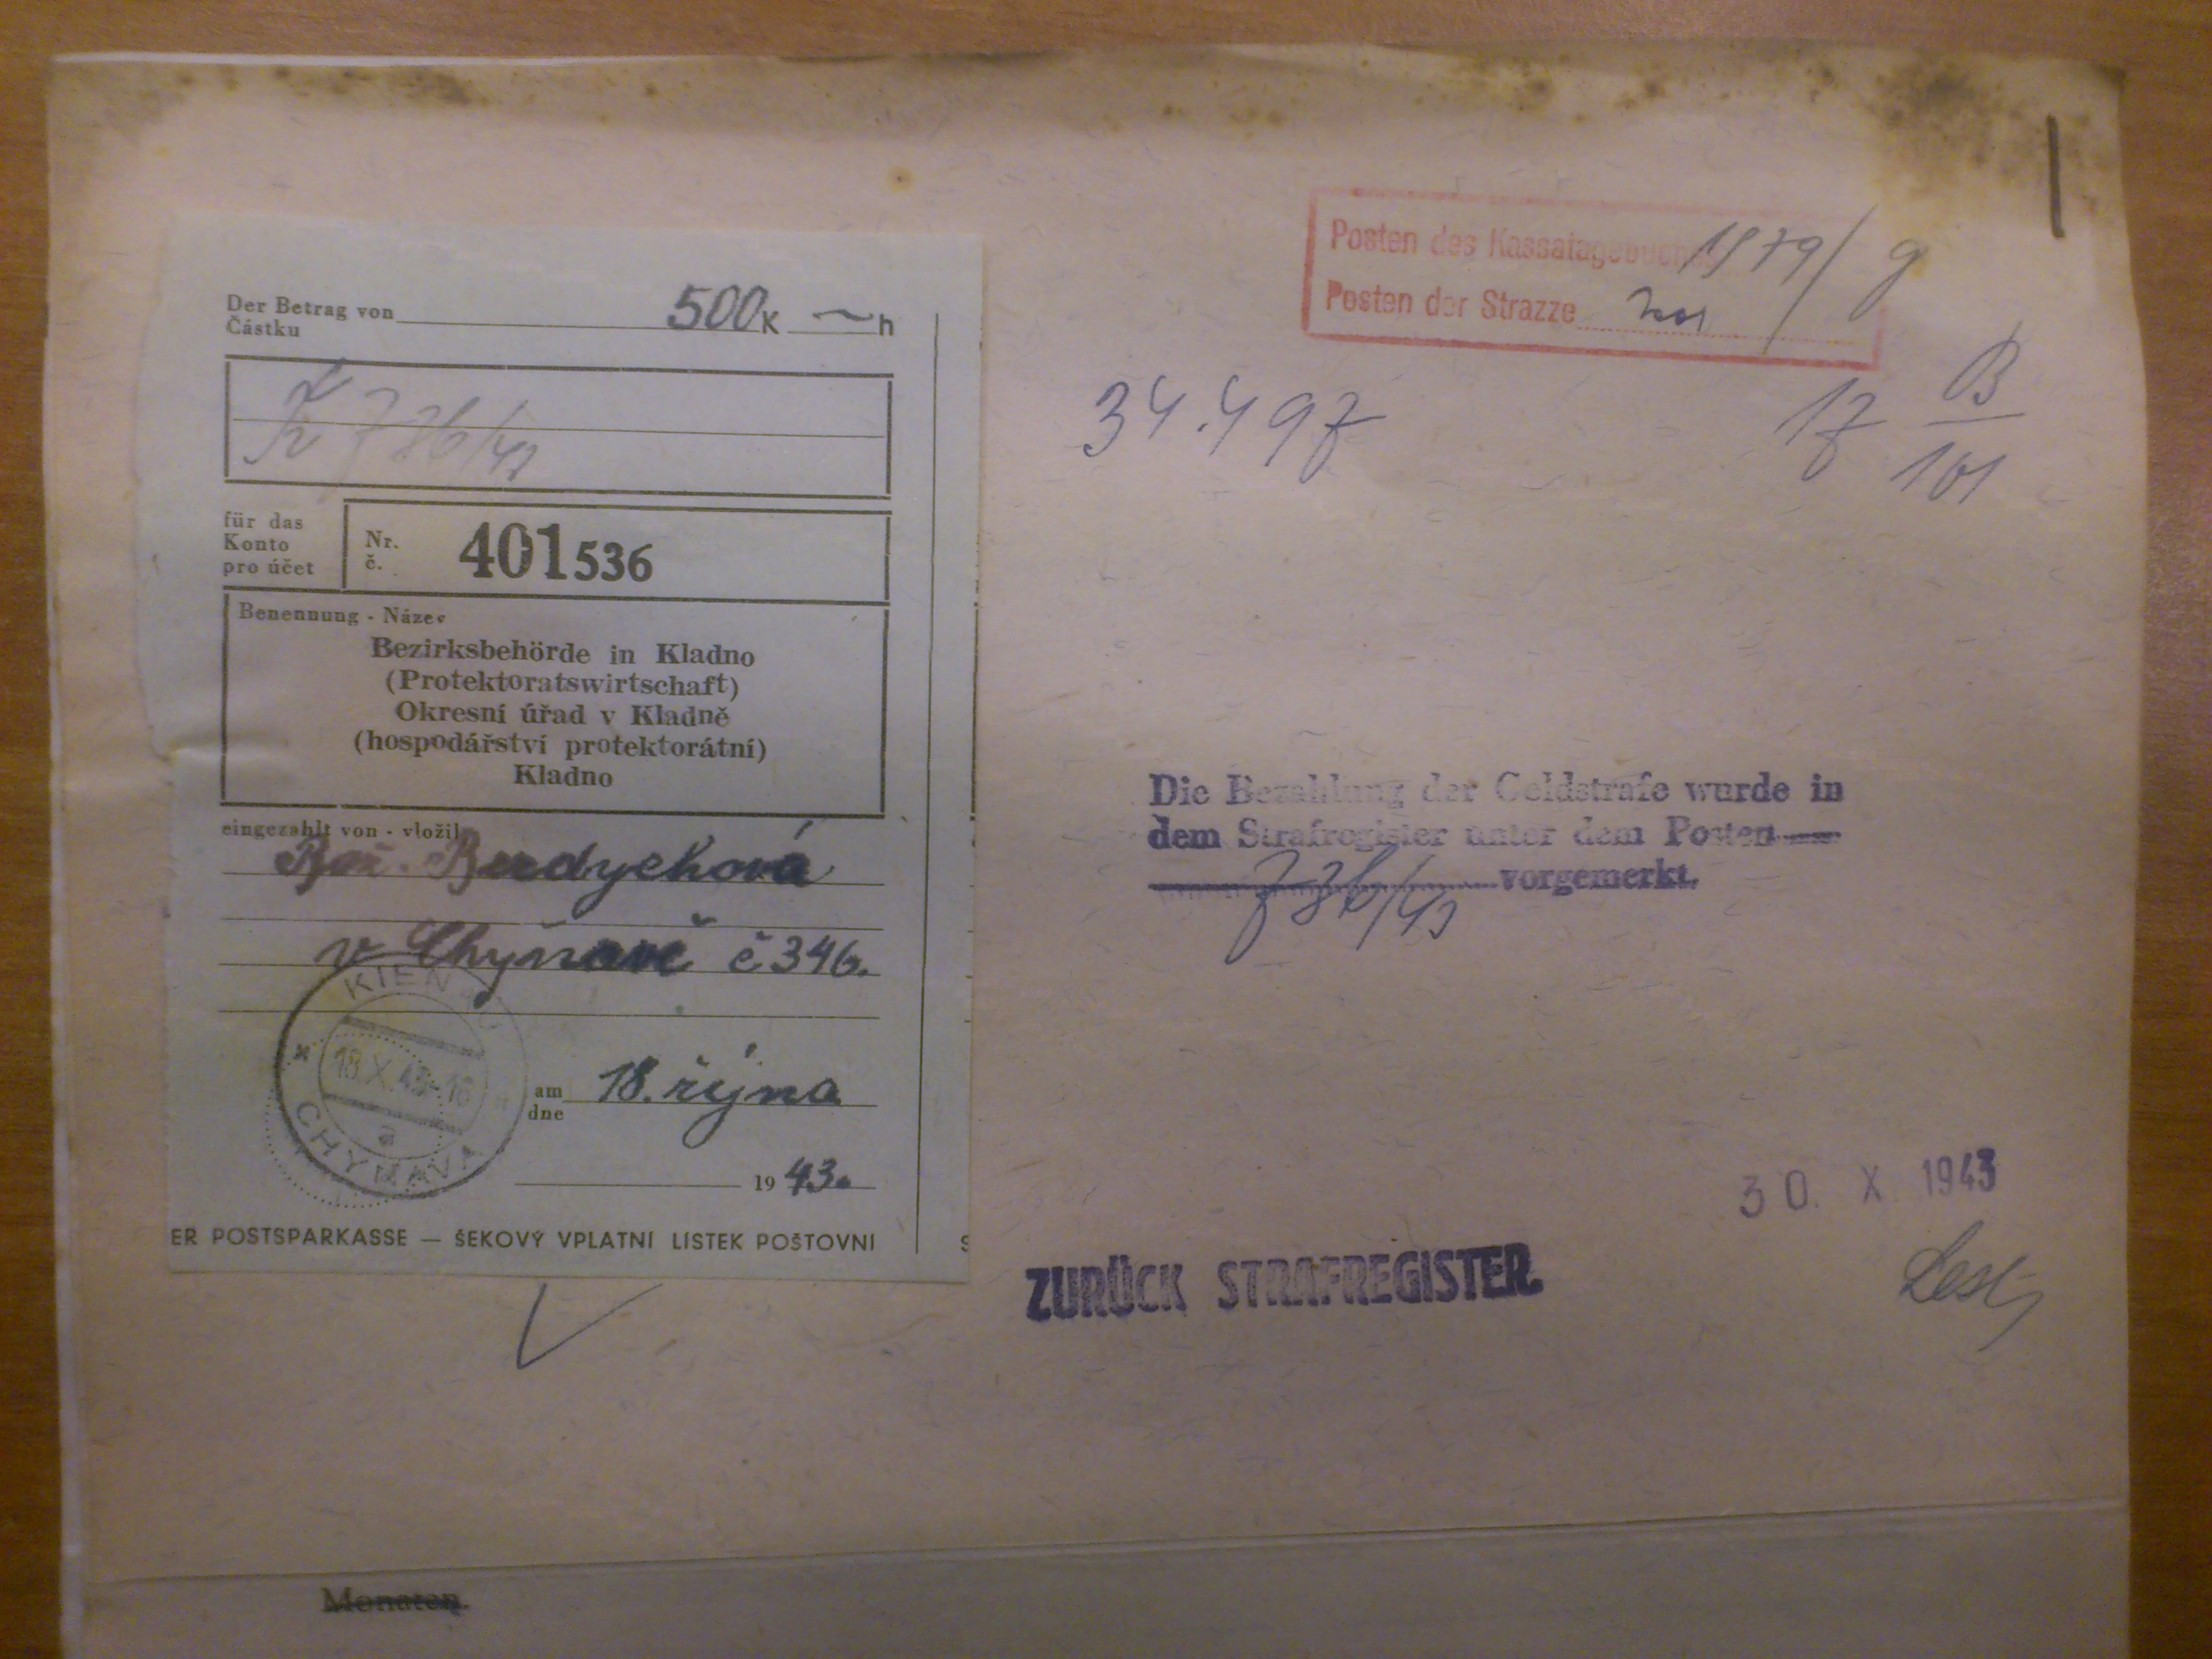 Der Betrag von 500 K — h
Částku
für das
Konto
pro účet
Nr.
č.
401536
Benennung - Název
Bezirksbehörde in Kladno
(Protektoratswirtschaft)
Okresní úřad v Kladně
(hospodářství protektorátní)
Kladno
eingezahlt von - vložil
Burdychová
v Chyňavě č 346.
CHYŇAVA
18.X.43-16
a
am
dne
18. října
1943.
ER POSTSPARKASSE — ŠEKOVÝ VPLATNÍ LÍSTEK POŠTOVNÍ
Posten des Kassatagebuches
Posten der Strazze
34.497
17 B
101
Die Bezahlung der Geldstrafe wurde in
dem Strafregister unter dem Posten
786/43 vorgemerkt.
30. X 1943
ZURÜCK STRAFREGISTER
Monaten.